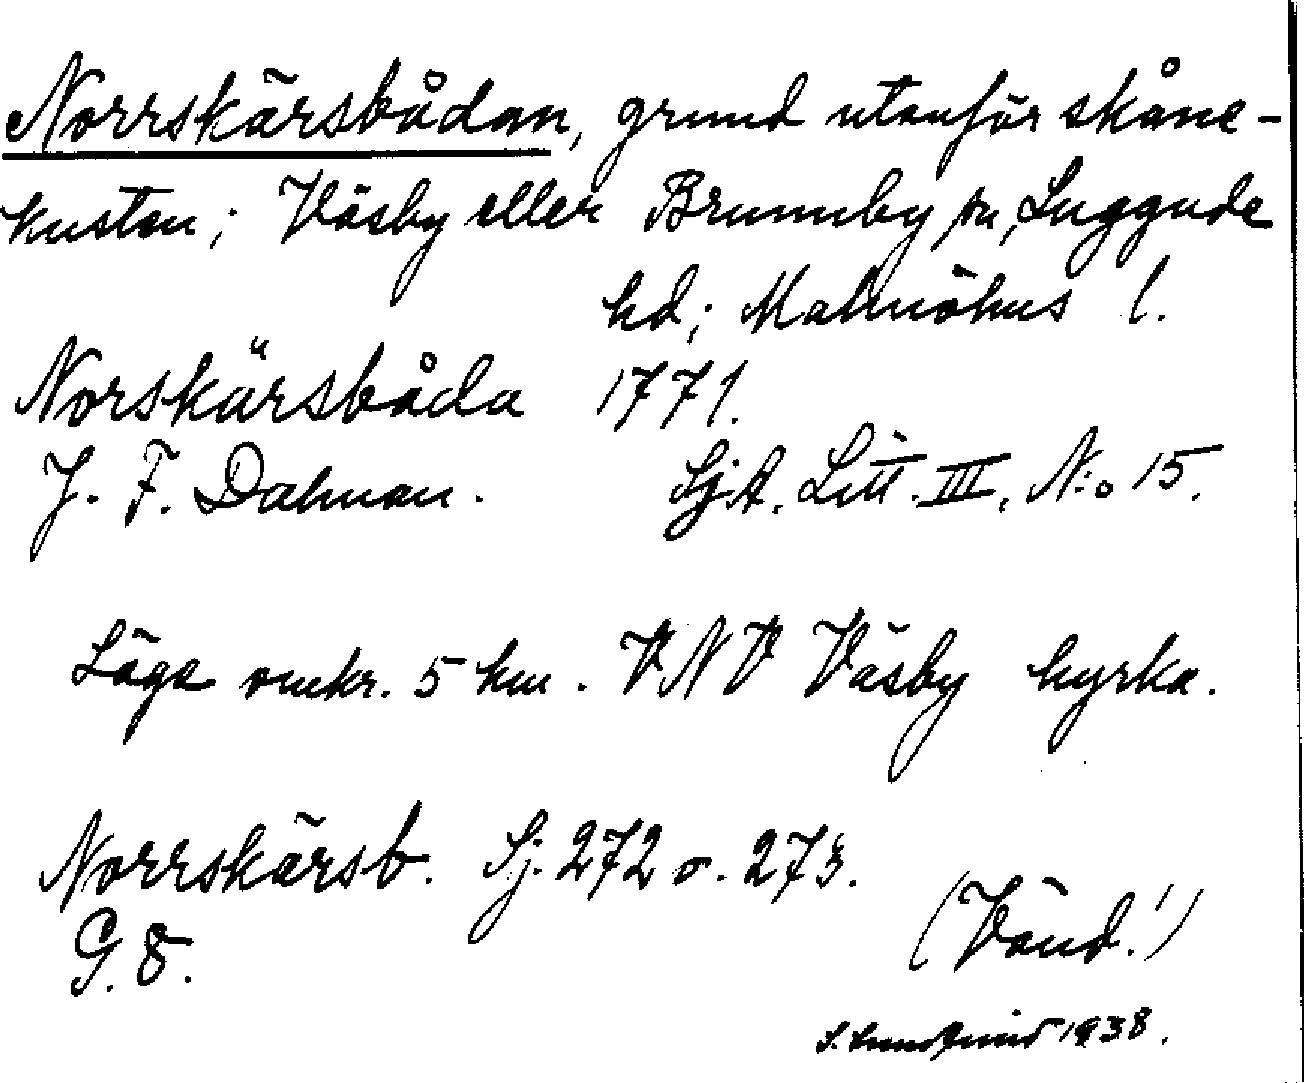 Norrskärsbådan, grund utanför skåne-
kusten; Väsby eller Brunnby sn, Luggude
hd; Malmöhus l.
Norskärsbåda 1771.
J. F. Dalman. SjA. Litt. III, N:o 15.
Läge omkr. 5 km. VNV Väsby kyrka.
Norrskärsb. Sj. 272 o. 273.
G. 8.
(Vänd!)
S. 1938.